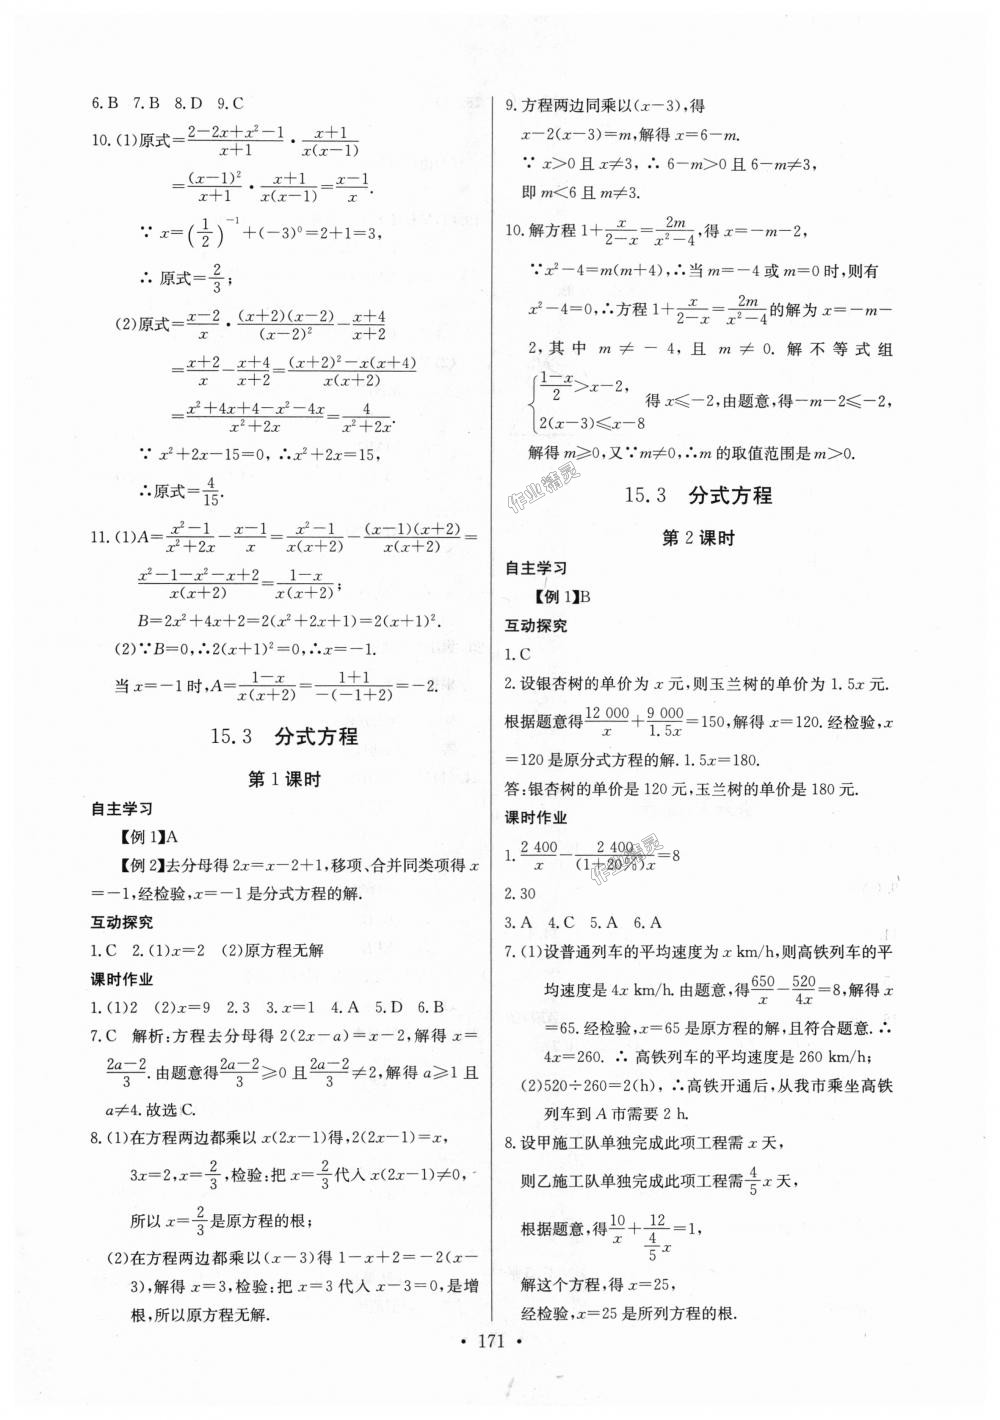 6.B 7.B 8.D 9.C
10.(1)原式=\frac{2-2x+x²-1}{x+1}·\frac{x+1}{x(x-1)}
=\frac{(x-1)²}{x+1}·\frac{x+1}{x(x-1)}=\frac{x-1}{x}.
∵ x=(\frac{1}{2})^{-1}+(-3)⁰=2+1=3,
∴ 原式=\frac{2}{3};
(2)原式=\frac{x-2}{x}·\frac{(x+2)(x-2)}{(x-2)²}-\frac{x+4}{x+2}
=\frac{x+2}{x}-\frac{x+4}{x+2}=\frac{(x+2)²-x(x+4)}{x(x+2)}
=\frac{x²+4x+4-x²-4x}{x²+2x}=\frac{4}{x²+2x}.
∵ x²+2x-15=0, ∴x²+2x=15,
∴原式=\frac{4}{15}.
11.(1)A=\frac{x²-1}{x²+2x}-\frac{x-1}{x}=\frac{x²-1}{x(x+2)}-\frac{(x-1)(x+2)}{x(x+2)}=
\frac{x²-1-x²-x+2}{x(x+2)}=\frac{1-x}{x(x+2)};
B=2x²+4x+2=2(x²+2x+1)=2(x+1)².
(2)∵B=0,∴2(x+1)²=0,∴x=-1.
当x=-1时,A=\frac{1-x}{x(x+2)}=\frac{1+1}{-(-1+2)}=-2.
15.3 分式方程
第1课时
自主学习
【例1】A
【例2】去分母得2x=x-2+1,移项、合并同类项得x
=-1,经检验,x=-1是分式方程的解.
互动探究
1.C 2.(1)x=2 (2)原方程无解
课时作业
1.(1)2 (2)x=9 2.3 3.x=1 4.A 5.D 6.B
7.C 解析:方程去分母得2(2x-a)=x-2,解得x=
\frac{2a-2}{3}.由题意得\frac{2a-2}{3}≥0且\frac{2a-2}{3}≠2,解得a≥1且
a≠4.故选C.
8.(1)在方程两边都乘以x(2x-1)得,2(2x-1)=x,
3x=2,x=\frac{2}{3},检验:把x=\frac{2}{3}代入x(2x-1)≠0,
所以x=\frac{2}{3}是原方程的根;
(2)在方程两边都乘以(x-3)得1-x+2=-2(x-
3),解得x=3,检验:把x=3代入x-3=0,是增
根,所以原方程无解.
9.方程两边同乘以(x-3),得
x-2(x-3)=m,解得x=6-m.
∵ x>0且x≠3, ∴ 6-m>0且6-m≠3,
即m<6且m≠3.
10.解方程1+\frac{x}{2-x}=\frac{2m}{x²-4},得x=-m-2,
∵x²-4=m(m+4),∴当m=-4或m=0时,则有
x²-4=0,∴方程1+\frac{x}{2-x}=\frac{2m}{x²-4}的解为x=-m-
2,其中m≠-4,且m≠0.解不等式组
{\frac{1-x}{2}>x-2, 得x≤-2,由题意,得-m-2≤-2,
2(x-3)≤x-8
解得m≥0,又∵m≠0,∴m的取值范围是m>0.
15.3 分式方程
第2课时
自主学习
【例1】B
互动探究
1.C
2.设银杏树的单价为x元,则玉兰树的单价为1.5x元.
根据题意得\frac{12 000}{x}+\frac{9 000}{1.5x}=150,解得x=120.经检验,x
=120是原分式方程的解.1.5x=180.
答:银杏树的单价是120元,玉兰树的单价是180元.
课时作业
1.\frac{2 400}{x}-\frac{2 400}{(1+20%)x}=8
2.30
3.A 4.C 5.A 6.A
7.(1)设普通列车的平均速度为x km/h,则高铁列车的平
均速度是4x km/h.由题意,得\frac{650}{x}-\frac{520}{4x}=8,解得x
=65.经检验,x=65是原方程的解,且符合题意.∴
4x=260. ∴ 高铁列车的平均速度是260 km/h;
(2)520÷260=2(h), ∴高铁开通后,从我市乘坐高铁
列车到A市需要2 h.
8.设甲施工队单独完成此项工程需x天,
则乙施工队单独完成此项工程需\frac{4}{5}x天,
根据题意,得\frac{10}{x}+\frac{12}{\frac{4}{5}x}=1,
解这个方程,得x=25,
经检验,x=25是所列方程的根.
·171·
作业精灵
作业精灵